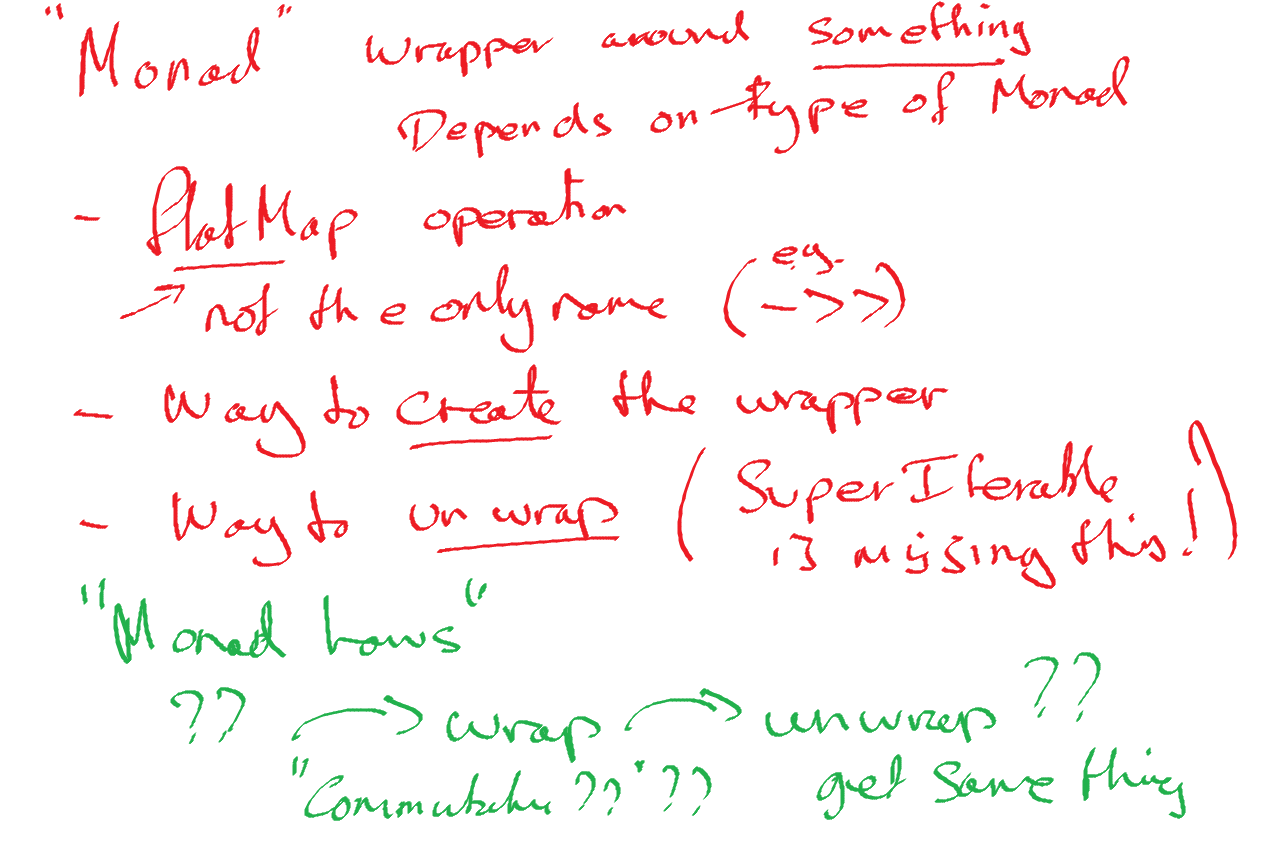 "Monad" Wrapper around something
Depends on type of Monad
- flatMap operation
→ not the only name (e.g. ->>)
- Way to create the wrapper
- Way to unwrap (SuperIterable
is missing this!)
"Monad Laws"
?? → wrap → unwrap ??
"Commutative ??" ?? get same thing